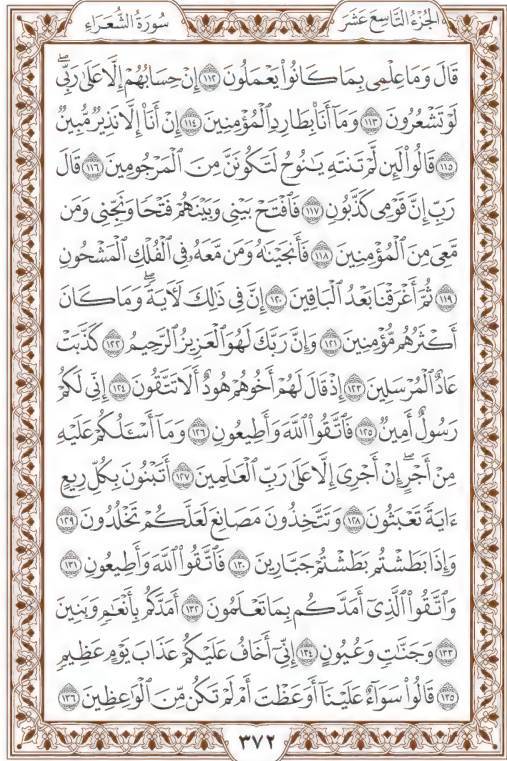 الجُزْءُ التَّاسِعَ عَشَرَ سُورَةُ الشُّعَرَاءِ
قَالَ وَمَا عِلْمِى بِمَا كَانُوا۟ يَعْمَلُونَ ١١٢ إِنْ حِسَابُهُمْ إِلَّا عَلَىٰ رَبِّىۖ
لَوْ تَشْعُرُونَ ١١٣ وَمَآ أَنَا۠ بِطَارِدِ ٱلْمُؤْمِنِينَ ١١٤ إِنْ أَنَا۠ إِلَّا نَذِيرٌ مُّبِينٌ
١١٥ قَالُوا۟ لَئِن لَّمْ تَنتَهِ يَٰنُوحُ لَتَكُونَنَّ مِنَ ٱلْمَرْجُومِينَ ١١٦ قَالَ
رَبِّ إِنَّ قَوْمِى كَذَّبُونِ ١١٧ فَٱفْتَحْ بَيْنِى وَبَيْنَهُمْ فَتْحًا وَنَجِّنِى وَمَن
مَّعِىَ مِنَ ٱلْمُؤْمِنِينَ ١١٨ فَأَنجَيْنَٰهُ وَمَن مَّعَهُۥ فِى ٱلْفُلْكِ ٱلْمَشْحُونِ
١١٩ ثُمَّ أَغْرَقْنَا بَعْدُ ٱلْبَاقِينَ ١٢٠ إِنَّ فِى ذَٰلِكَ لَءَايَةًۖ وَمَا كَانَ
أَكْثَرُهُم مُّؤْمِنِينَ ١٢١ وَإِنَّ رَبَّكَ لَهُوَ ٱلْعَزِيزُ ٱلرَّحِيمُ ١٢٢ كَذَّبَتْ
عَادٌ ٱلْمُرْسَلِينَ ١٢٣ إِذْ قَالَ لَهُمْ أَخُوهُمْ هُودٌ أَلَا تَتَّقُونَ ١٢٤ إِنِّى لَكُمْ
رَسُولٌ أَمِينٌ ١٢٥ فَٱتَّقُوا۟ ٱللَّهَ وَأَطِيعُونِ ١٢٦ وَمَآ أَسْـَٔلُكُمْ عَلَيْهِ
مِنْ أَجْرٍۖ إِنْ أَجْرِىَ إِلَّا عَلَىٰ رَبِّ ٱلْعَٰلَمِينَ ١٢٧ أَتَبْنُونَ بِكُلِّ رِيعٍ
ءَايَةً تَعْبَثُونَ ١٢٨ وَتَتَّخِذُونَ مَصَانِعَ لَعَلَّكُمْ تَخْلُدُونَ ١٢٩
وَإِذَا بَطَشْتُم بَطَشْتُمْ جَبَّارِينَ ١٣٠ فَٱتَّقُوا۟ ٱللَّهَ وَأَطِيعُونِ ١٣١
وَٱتَّقُوا۟ ٱلَّذِىٓ أَمَدَّكُم بِمَا تَعْلَمُونَ ١٣٢ أَمَدَّكُم بِأَنْعَٰمٍ وَبَنِينَ
١٣٣ وَجَنَّٰتٍ وَعُيُونٍ ١٣٤ إِنِّىٓ أَخَافُ عَلَيْكُمْ عَذَابَ يَوْمٍ عَظِيمٍ
١٣٥ قَالُوا۟ سَوَآءٌ عَلَيْنَآ أَوَعَظْتَ أَمْ لَمْ تَكُن مِّنَ ٱلْوَٰعِظِينَ ١٣٦
٣٧٢